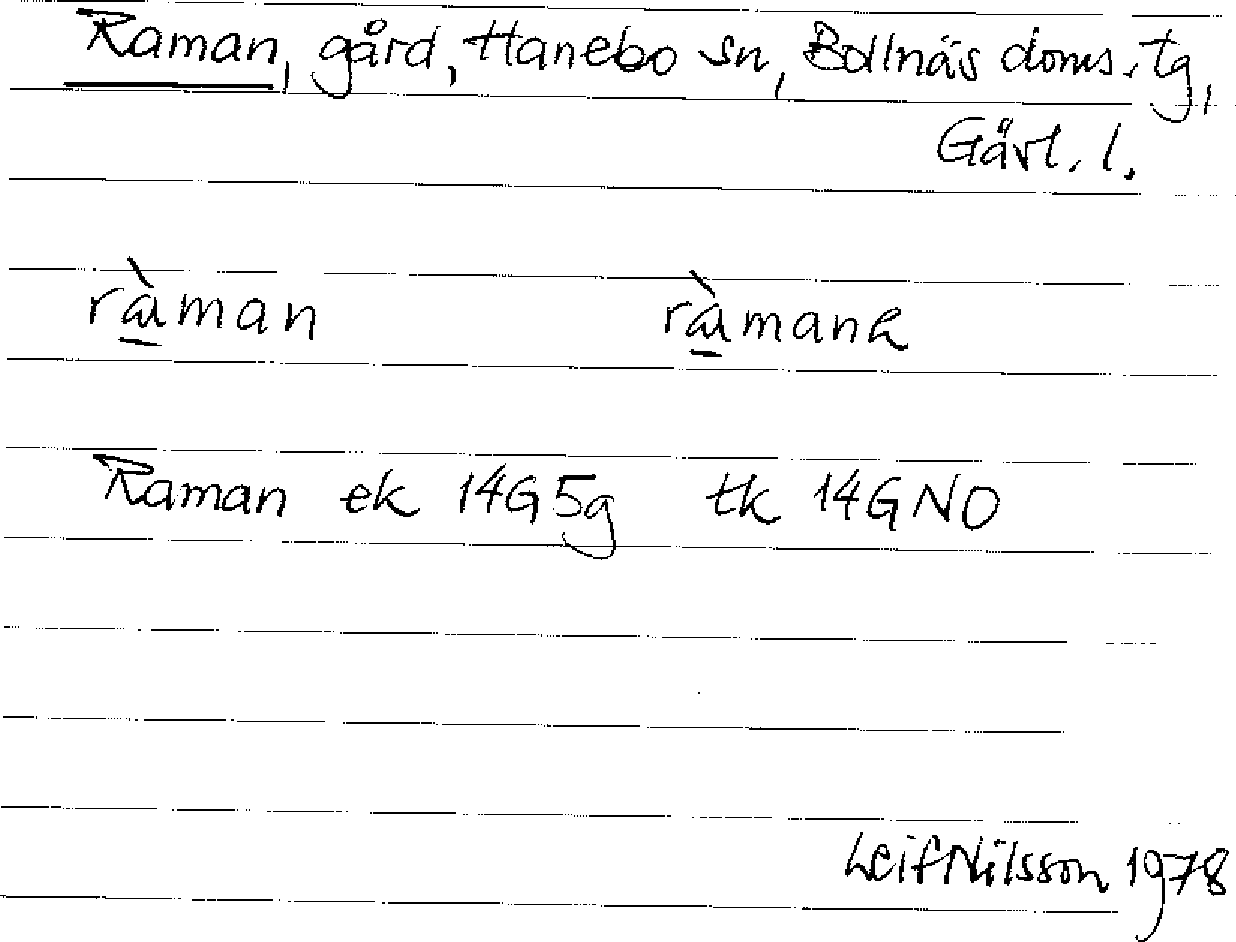 Raman, gård, Hanebo sn, Bollnäs doms. tg,
Gävl. l.
ràman ràmana
Raman ek 14G5g tk 14GNO
Leif Nilsson 1978